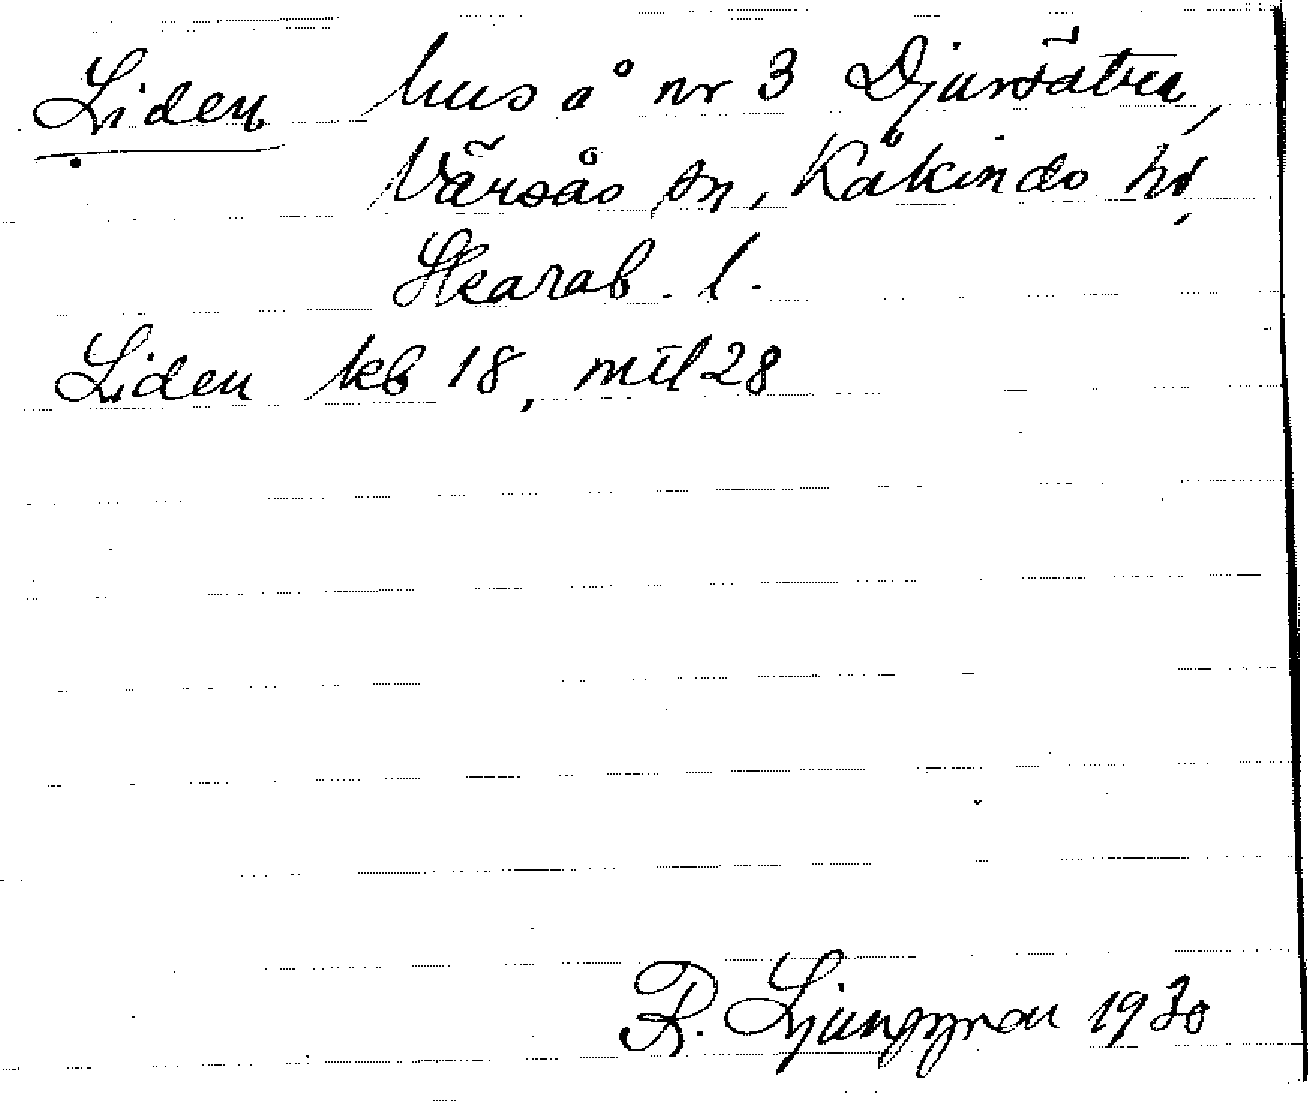 Liden hus å nr 3 Djursätra,
Värsås sn, Kåkinds hd,
Skarab. l.
Liden kb 18, mtl 28
R. Ljunggren 1930